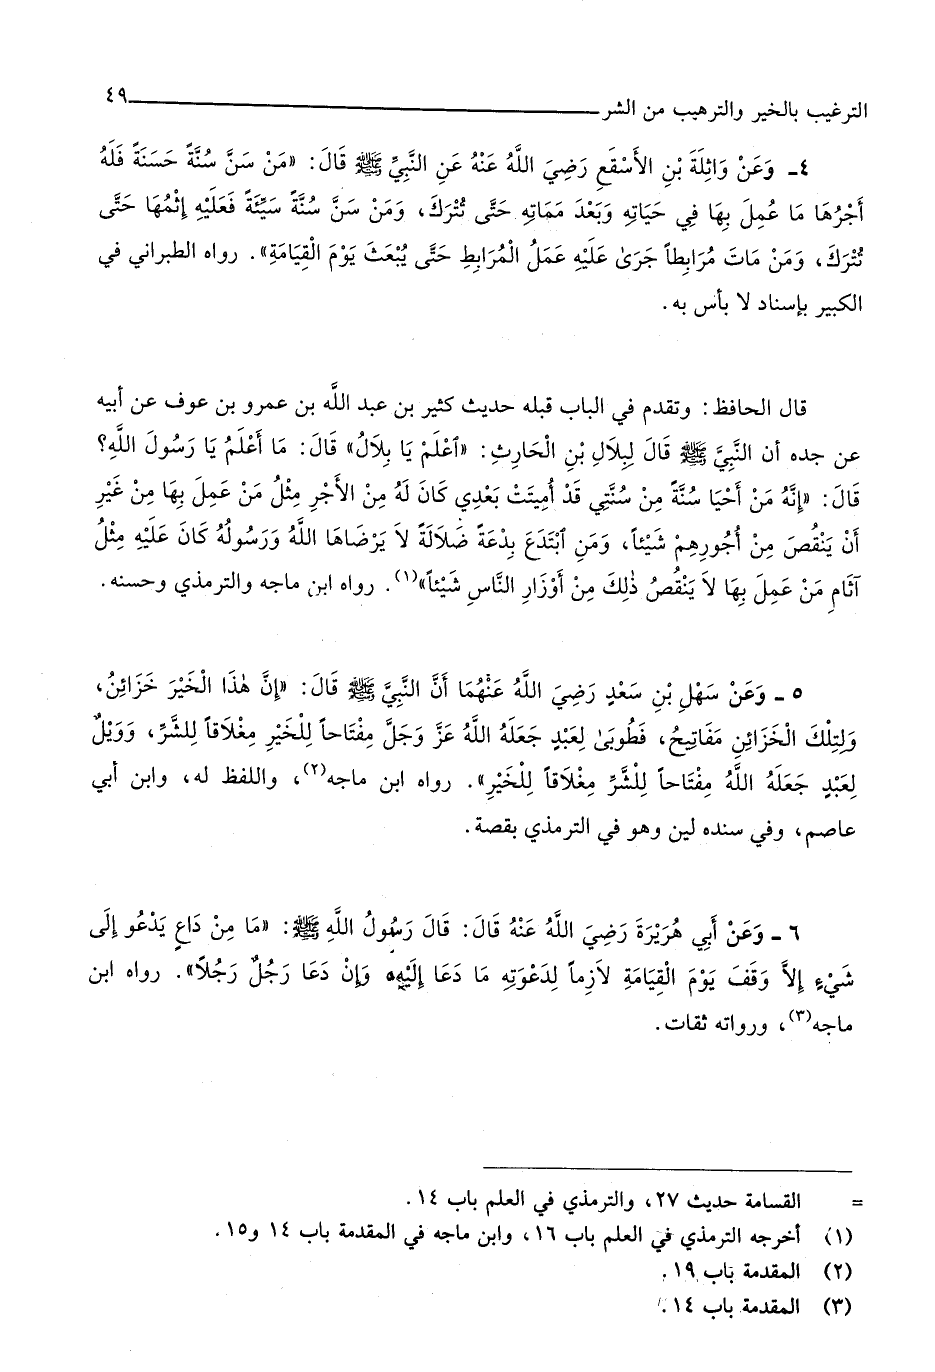 الترغيب بالخير والترهيب من الشر ٤٩
٤ـ وَعَنْ وَاثِلَةَ بْنِ الأَسْقَعِ رَضِيَ اللَّهُ عَنْهُ عَنِ النَّبِيِّ ﷺ قَالَ: «مَنْ سَنَّ سُنَّةً حَسَنَةً فَلَهُ
أَجْرُهَا مَا عُمِلَ بِهَا فِي حَيَاتِهِ وَبَعْدَ مَمَاتِهِ حَتَّى تُتْرَكَ، وَمَنْ سَنَّ سُنَّةً سَيِّئَةً فَعَلَيْهِ إِثْمُهَا حَتَّى
تُتْرَكَ، وَمَنْ مَاتَ مُرَابِطاً جَرَىٰ عَلَيْهِ عَمَلُ الْمُرَابِطِ حَتَّى يُبْعَثَ يَوْمَ الْقِيَامَةِ». رواه الطبراني في
الكبير بإسناد لا بأس به.
قال الحافظ: وتقدم في الباب قبله حديث كثير بن عبد اللَّه بن عمرو بن عوف عن أبيه
عن جده أن النَّبِيَّ ﷺ قَالَ لِبِلَالِ بْنِ الْحَارِثِ: «ٱعْلَمْ يَا بِلَالُ» قَالَ: مَا أَعْلَمُ يَا رَسُولَ اللَّهِ؟
قَالَ: «إِنَّهُ مَنْ أَحْيَا سُنَّةً مِنْ سُنَّتِي قَدْ أُمِيتَتْ بَعْدِي كَانَ لَهُ مِنَ الأَجْرِ مِثْلُ مَنْ عَمِلَ بِهَا مِنْ غَيْرِ
أَنْ يَنْقُصَ مِنْ أُجُورِهِمْ شَيْئاً، وَمَنِ ٱبْتَدَعَ بِدْعَةً ضَلَالَةً لاَ يَرْضَاهَا اللَّهُ وَرَسُولُهُ كَانَ عَلَيْهِ مِثْلُ
آثَامِ مَنْ عَمِلَ بِهَا لاَ يَنْقُصُ ذٰلِكَ مِنْ أَوْزَارِ النَّاسِ شَيْئاً»(١). رواه ابن ماجه والترمذي وحسنه.
٥ ـ وَعَنْ سَهْلِ بْنِ سَعْدٍ رَضِيَ اللَّهُ عَنْهُمَا أَنَّ النَّبِيَّ ﷺ قَالَ: «إِنَّ هٰذَا الْخَيْرَ خَزَائِنُ،
وَلِتِلْكَ الْخَزَائِنِ مَفَاتِيحُ، فَطُوبَىٰ لِعَبْدٍ جَعَلَهُ اللَّهُ عَزَّ وَجَلَّ مِفْتَاحاً لِلْخَيْرِ مِغْلَاقاً لِلشَّرِّ، وَوَيْلٌ
لِعَبْدٍ جَعَلَهُ اللَّهُ مِفْتَاحاً لِلشَّرِّ مِغْلَاقاً لِلْخَيْرِ». رواه ابن ماجه(٢)، واللفظ له، وابن أبي
عاصم، وفي سنده لين وهو في الترمذي بقصة.
٦ ـ وَعَنْ أَبِي هُرَيْرَةَ رَضِيَ اللَّهُ عَنْهُ قَالَ: قَالَ رَسُولُ اللَّهِ ﷺ: «مَا مِنْ دَاعٍ يَدْعُو إِلَى
شَيْءٍ إِلاَّ وَقَفَ يَوْمَ الْقِيَامَةِ لاَزِماً لِدَعْوَتِهِ مَا دَعَا إِلَيْهِ، وَإِنْ دَعَا رَجُلٌ رَجُلاً». رواه ابن
ماجه(٣)، ورواته ثقات.
= القسامة حديث ٢٧، والترمذي في العلم باب ١٤.
(١) أخرجه الترمذي في العلم باب ١٦، وابن ماجه في المقدمة باب ١٤ و١٥.
(٢) المقدمة باب ١٩.
(٣) المقدمة باب ١٤.